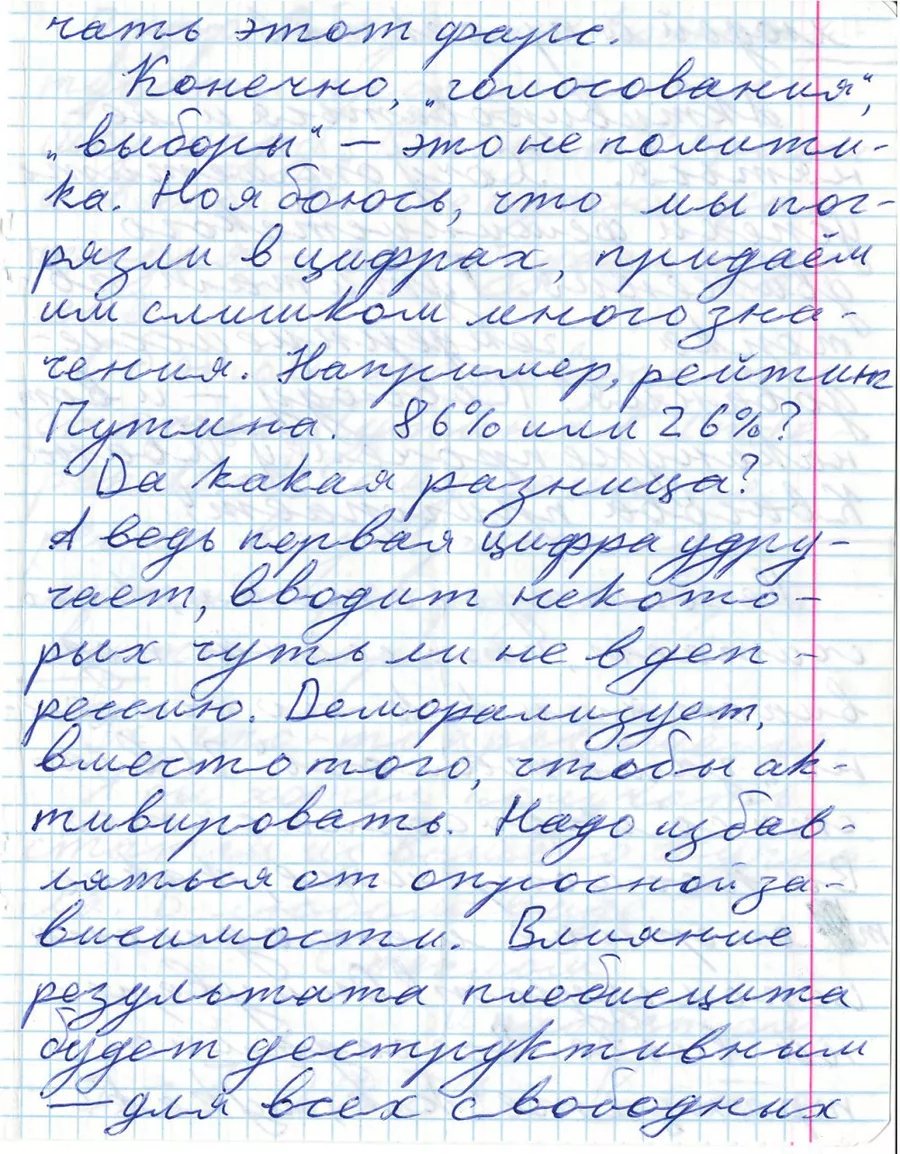 чать этот фарс.
Конечно, „голосования“,
„выборы“ — это не полити-
ка. Но я боюсь, что мы пог-
рязли в цифрах, придаём
им слишком много зна-
чения. Например, рейтинг
Путина. 86% или 26%?
Да какая разница?
А ведь первая цифра удру-
чает, вводит некото-
рых чуть ли не в деп-
рессию. Деморализует,
вместо того, чтобы ак-
тивировать. Надо избав-
ляться от опросной за-
висимости. Влияние
результата плебисцита
будет деструктивным
— для всех свободных